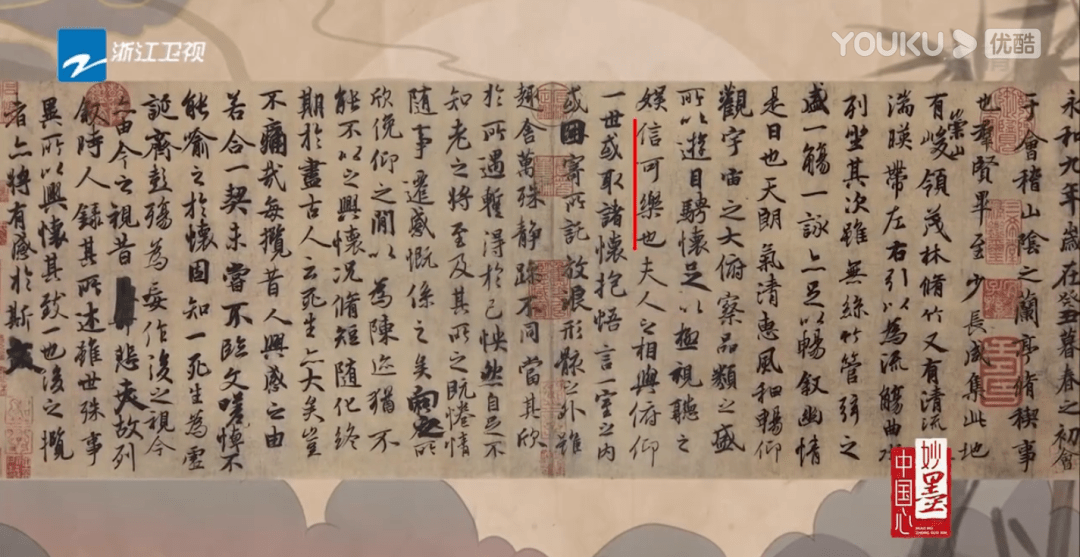 浙江卫视
YOUKU 优酷
永和九年歲在癸丑暮春之初會
于會稽山陰之蘭亭脩禊事
也羣賢畢至少長咸集此地
有崇山峻領茂林脩竹又有清流
湍暎帶左右引以為流觴曲水
列坐其次雖無絲竹管弦之
盛一觴一詠亦足以暢敘幽情
是日也天朗氣清惠風和暢仰
觀宇宙之大俯察品類之盛
所以遊目騁懷足以極視聽之
娛信可樂也夫人之相與俯仰
一世或取諸懷抱悟言一室之內
或因寄所託放浪形骸之外雖
趣舍萬殊靜躁不同當其欣
於所遇蹔得於己怏然自足不
知老之將至及其所之既惓情
隨事遷感慨係之矣向之所
欣俛仰之閒以為陳迹猶不
能不以之興懷況脩短隨化終
期於盡古人云死生亦大矣豈
不痛哉每攬昔人興感之由
若合一契未嘗不臨文嗟悼不
能喻之於懷固知一死生為虛
誕齊彭殤為妄作後之視今
亦由今之視昔悲夫故列
敘時人錄其所述雖世殊事
異所以興懷其致一也後之攬
者亦將有感於斯文
妙墨
中国心